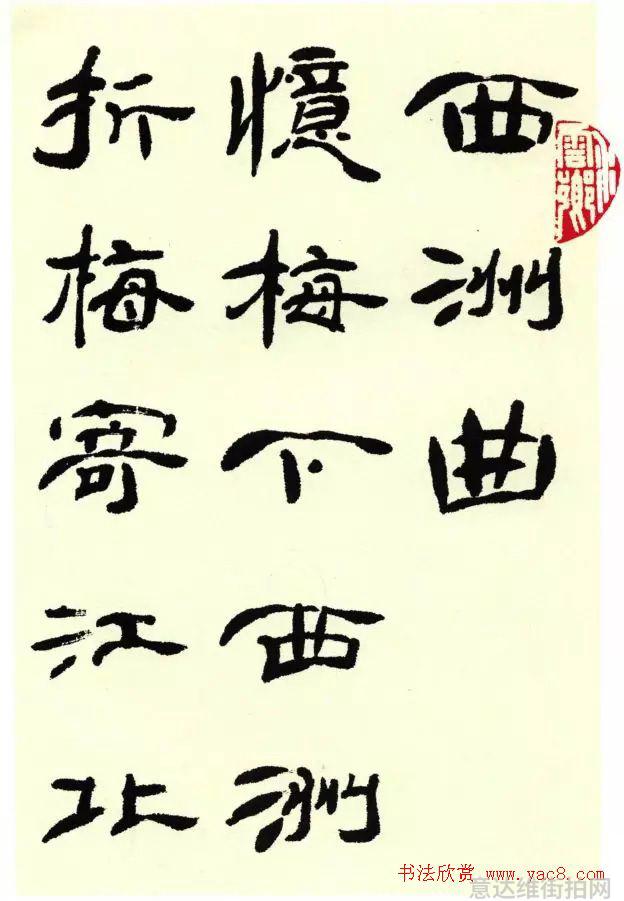 西洲曲
憶梅下西洲
折梅寄江北
书法欣赏 www.yac8.com
意达维街拍网